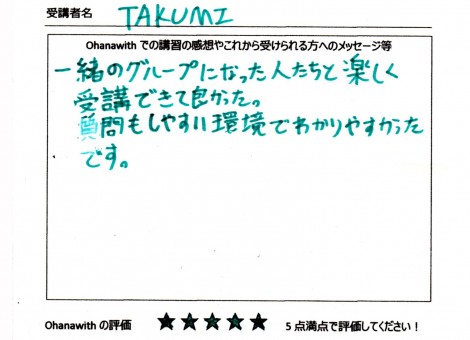 受講者名 TAKUMI
Ohanawith での講習の感想やこれから受けられる方へのメッセージ等
一緒のグループになった人たちと楽しく
受講できて良かった。
質問もしやすい環境でわかりやすかった
です。
Ohanawith の評価 ★★★★★ 5点満点で評価してください!